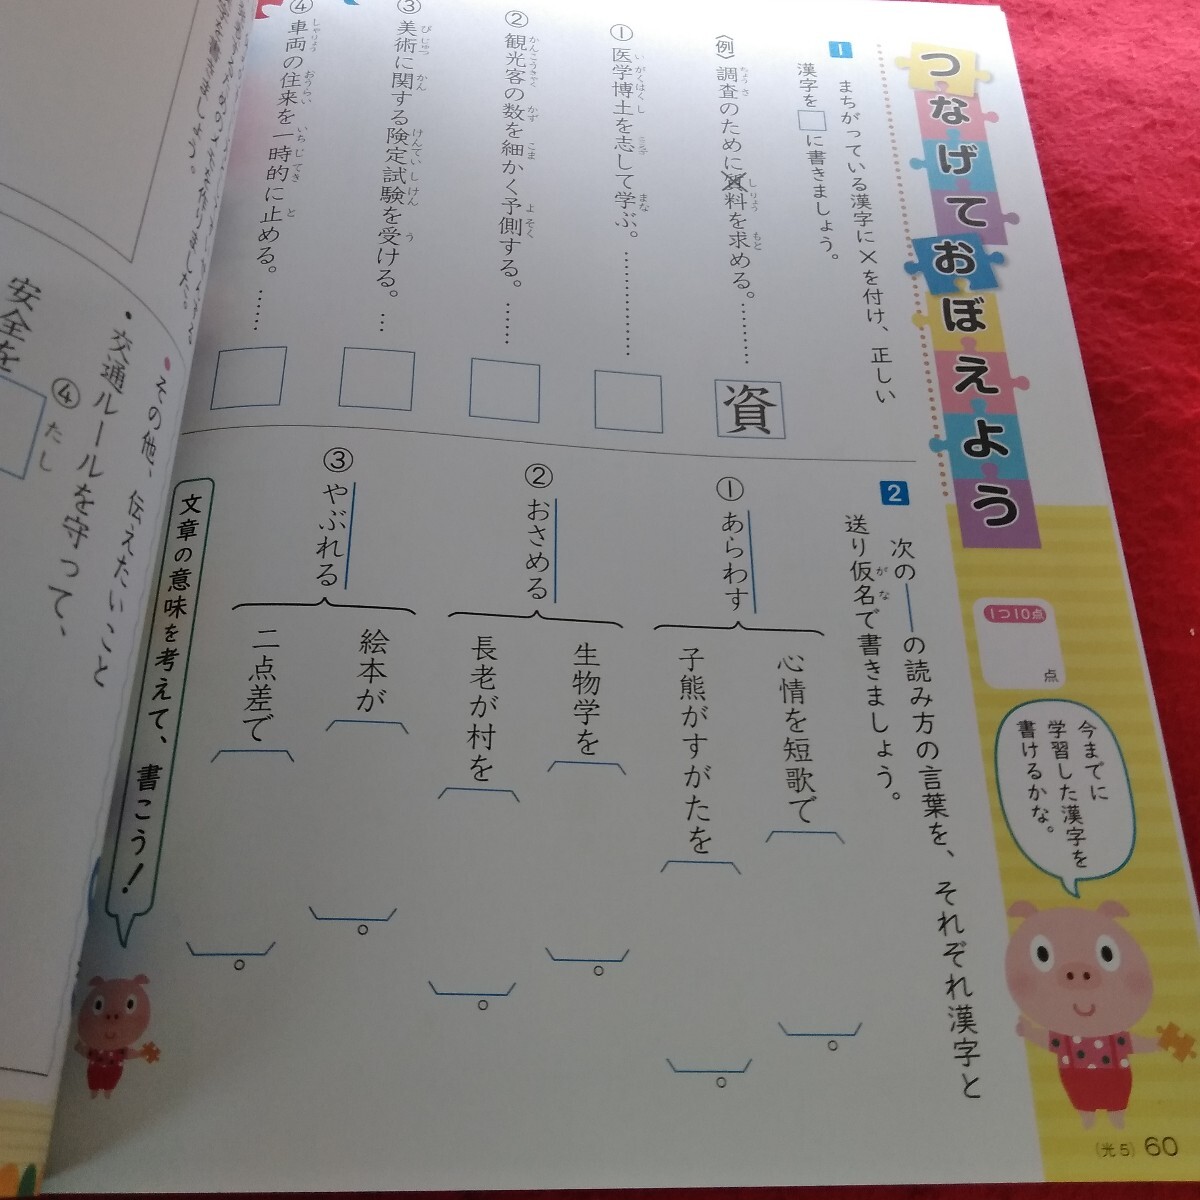 つなげておぼえよう
1 まちがっている漢字に×を付け、正しい
漢字を□に書きましょう。
〈例〉調査のために質料を求める。…………
資
①医学博土を志して学ぶ。………………
②観光客の数を細かく予側する。……
③美術に関する険定試験を受ける。…
④車両の住来を一時的に止める。……
1つ10点
点
今までに
学習した漢字を
書けるかな。
2 次の――の読み方の言葉を、それぞれ漢字と
送り仮名で書きましょう。
①あらわす
心情を短歌で
。
子熊がすがたを
。
②おさめる
生物学を
。
長老が村を
。
③やぶれる
絵本が
。
二点差で
。
文章の意味を考えて、書こう!
(光5) 60
・その他、伝えたいこと
・交通ルールを守って、
④たし
安全を